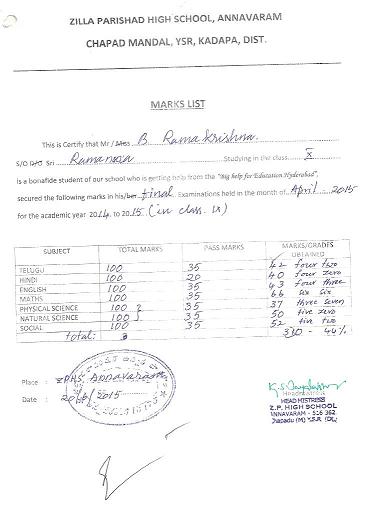 ZILLA PARISHAD HIGH SCHOOL, ANNAVARAM
CHAPAD MANDAL, YSR, KADAPA, DIST.
MARKS LIST
This is Certify that Mr / Miss B. Rama Krishna.
S/O D/O Sri Ramanaya Studying in the class X
is a bonafide student of our school who is getting help from the "Big help for Education Hyderabad",
secured the following marks in his/her final Examinations held in the month of April 2015
for the academic year 2014 to 2015 (in class IX)
SUBJECT TOTAL MARKS PASS MARKS MARKS/GRADES OBTAINED
TELUGU 100 35 42 four two
HINDI 100 20 40 four zero
ENGLISH 100 35 43 four three
MATHS 100 35 66 six six
PHYSICAL SCIENCE 100 35 37 three seven
NATURAL SCIENCE 100 35 50 five zero
SOCIAL 100 35 52 five two
Total: 330 - 46%
Place : ZPHS, Annavaram
Date : 2015
Headmistress
HEAD MISTRESS
Z.P. HIGH SCHOOL
ANNAVARAM - 516 362
Chapadu (M) Y.S.R. (Dt.)